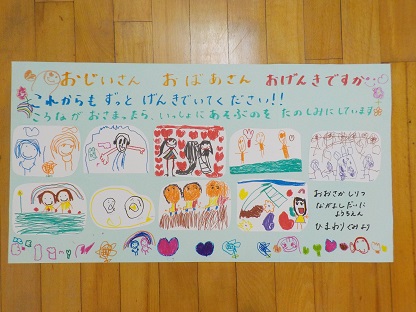 おじいさん おばあさん おげんきですか
これからも ずっと げんきでいてください!!
ころながおさまったら、いっしょにあそぶのを たのしみにしています
おおさかしりつ
ながよしだいに
ようちえん
ひまわりぐみより